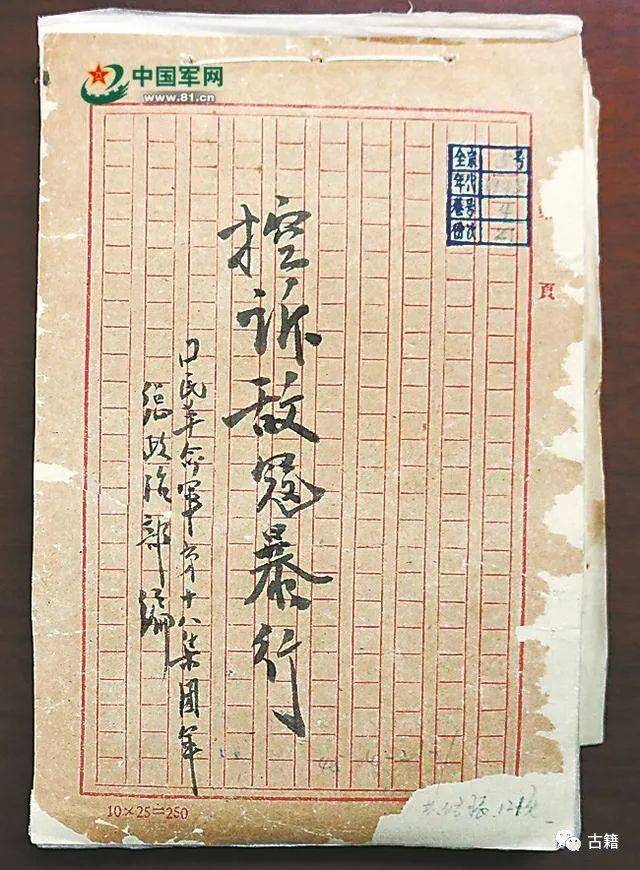 中国军网
www.81.cn
全宗 号
年代
卷号
份次
頁
控诉敌寇暴行
口民革命軍第十八集团军
总政治部編
10×25=250
古籍